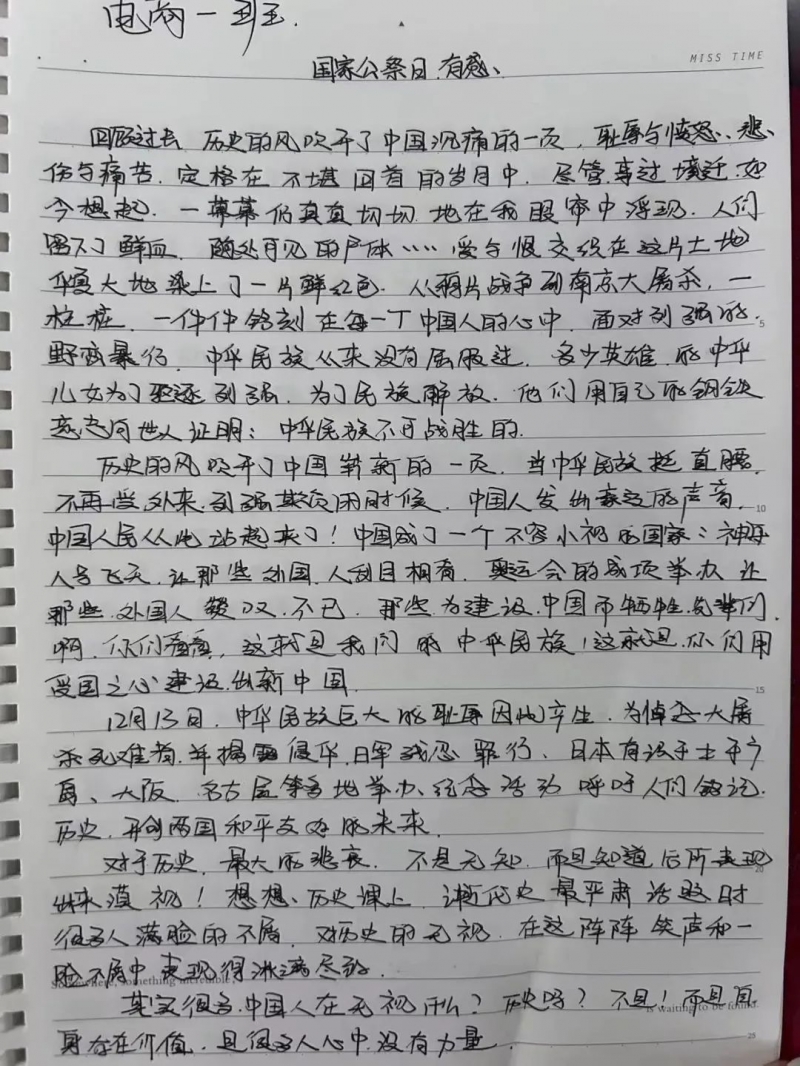 电商一班.
MISS TIME
国家公祭日有感、
回顾过去,历史的风吹开了中国沉痛的一页,耻辱与愤怒、悲
伤与痛苦.定格在不堪回首的岁月中.尽管事过境迁.如
今想起.一幕幕仍真真切切地在我眼帘中浮现.人们
不了鲜血 随处可见的尸体……爱与恨交织在这片土地
华夏大地染上了一片鲜红色.从鸦片战争到南京大屠杀,一
桩桩.一件件铭刻在每一个中国人的心中.面对列强的.
野蛮暴行,中华民族从来没有屈服过.多少英雄的中华
儿女为了驱逐列强.为了民族解放.他们用自己的钢铁
意志向世人证明:中华民族不可战胜的.
历史的风吹开了中国崭新的一页.当中华民族挺直腰.
不再受外来.列强欺负的时候,中国人发出豪迈的声音.
中国人民从此站起来了!中国成了一个不容小视的国家:神舟
八号飞天,让那些外国人刮目相看.奥运会的成功举办让
那些外国人赞叹不已.那些为建设中国而牺牲先辈们.
啊.你们看看,这就是我们的中华民族!这就是你们用
爱国之心建设出新中国.
12月13日,中华民族巨大的耻辱因此产生.为悼念大屠
杀死难者,并揭露侵华日军残忍罪行、日本有识于士于广
岛、大阪.名古屋等多地举办、纪念活动呼吁人们铭记.
历史,开创两国和平友好的未来.
对于历史,最大的悲哀.不是无知.而是知道后所表现
出来漠视!想想、历史课上,近代史最严肃话题时
很多人满脸的不屑.对历史的无视.在这阵阵笑声和一
脸不屑中表现得淋漓尽致.
Somewhere, something incredible
其实很多中国人在无视什么?历史吗?不是!而是自
is waiting to be found.
身存在价值,是很多人心中没有力量.
5
10
15
20
25